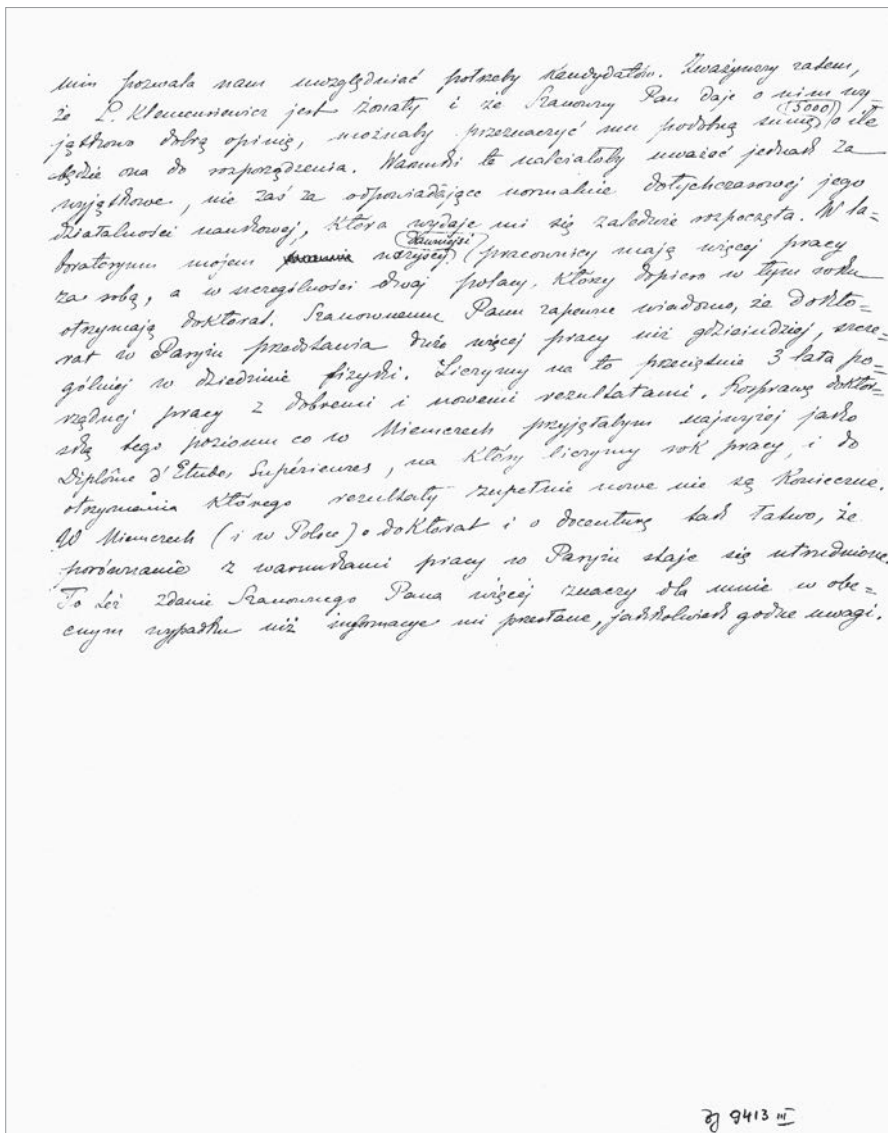 min pozwala nam uwzględniać potrzeby kandydatów. Zważywszy zatem,
że P. Klemensiewicz jest żonaty i że Szanowny Pan daje o nim wy-
jątkowo dobrą opinię, możnaby przeznaczyć mu podobną sumę (5000) o ile
będzie ona do rozporządzenia. Warunki te należałoby uważać jednak za
wyjątkowe, nie zaś za odpowiadające normalnie dotychczasowej jego
działalności naukowej, która wydaje mi się zaledwie rozpoczęta. W la-
boratoryum mojem wszyscy dawniejsi pracownicy mają więcej pracy
za sobą, a w szczególności dwaj polacy, którzy dopiero w tym roku
otrzymają doktorat. Szanownemu Panu zapewne wiadomo, że dokto=
rat w Paryżu przedstawia dużo więcej pracy niż gdzieindziej, szcze=
gólniej w dziedzinie fizyki. Liczymy na to przeciętnie 3 lata po=
rządnej pracy z dobremi i nowemi rezultatami. Rozprawę doktor=
ską tego poziomu co w Niemczech przyjęłabym najwyżej jako
Diplôme d'Etudes Supérieures, na który liczymy rok pracy, i do
otrzymania którego rezultaty zupełnie nowe nie są konieczne.
W Niemczech (i w Polsce) o doktorat i o docenturę tak łatwo, że
porównanie z warunkami pracy w Paryżu staje się utrudnione.
To też zdanie Szanownego Pana więcej znaczy dla mnie w obe=
cnym wypadku niż informacye mi przesłane, jakkolwiek godne uwagi.
9413 III